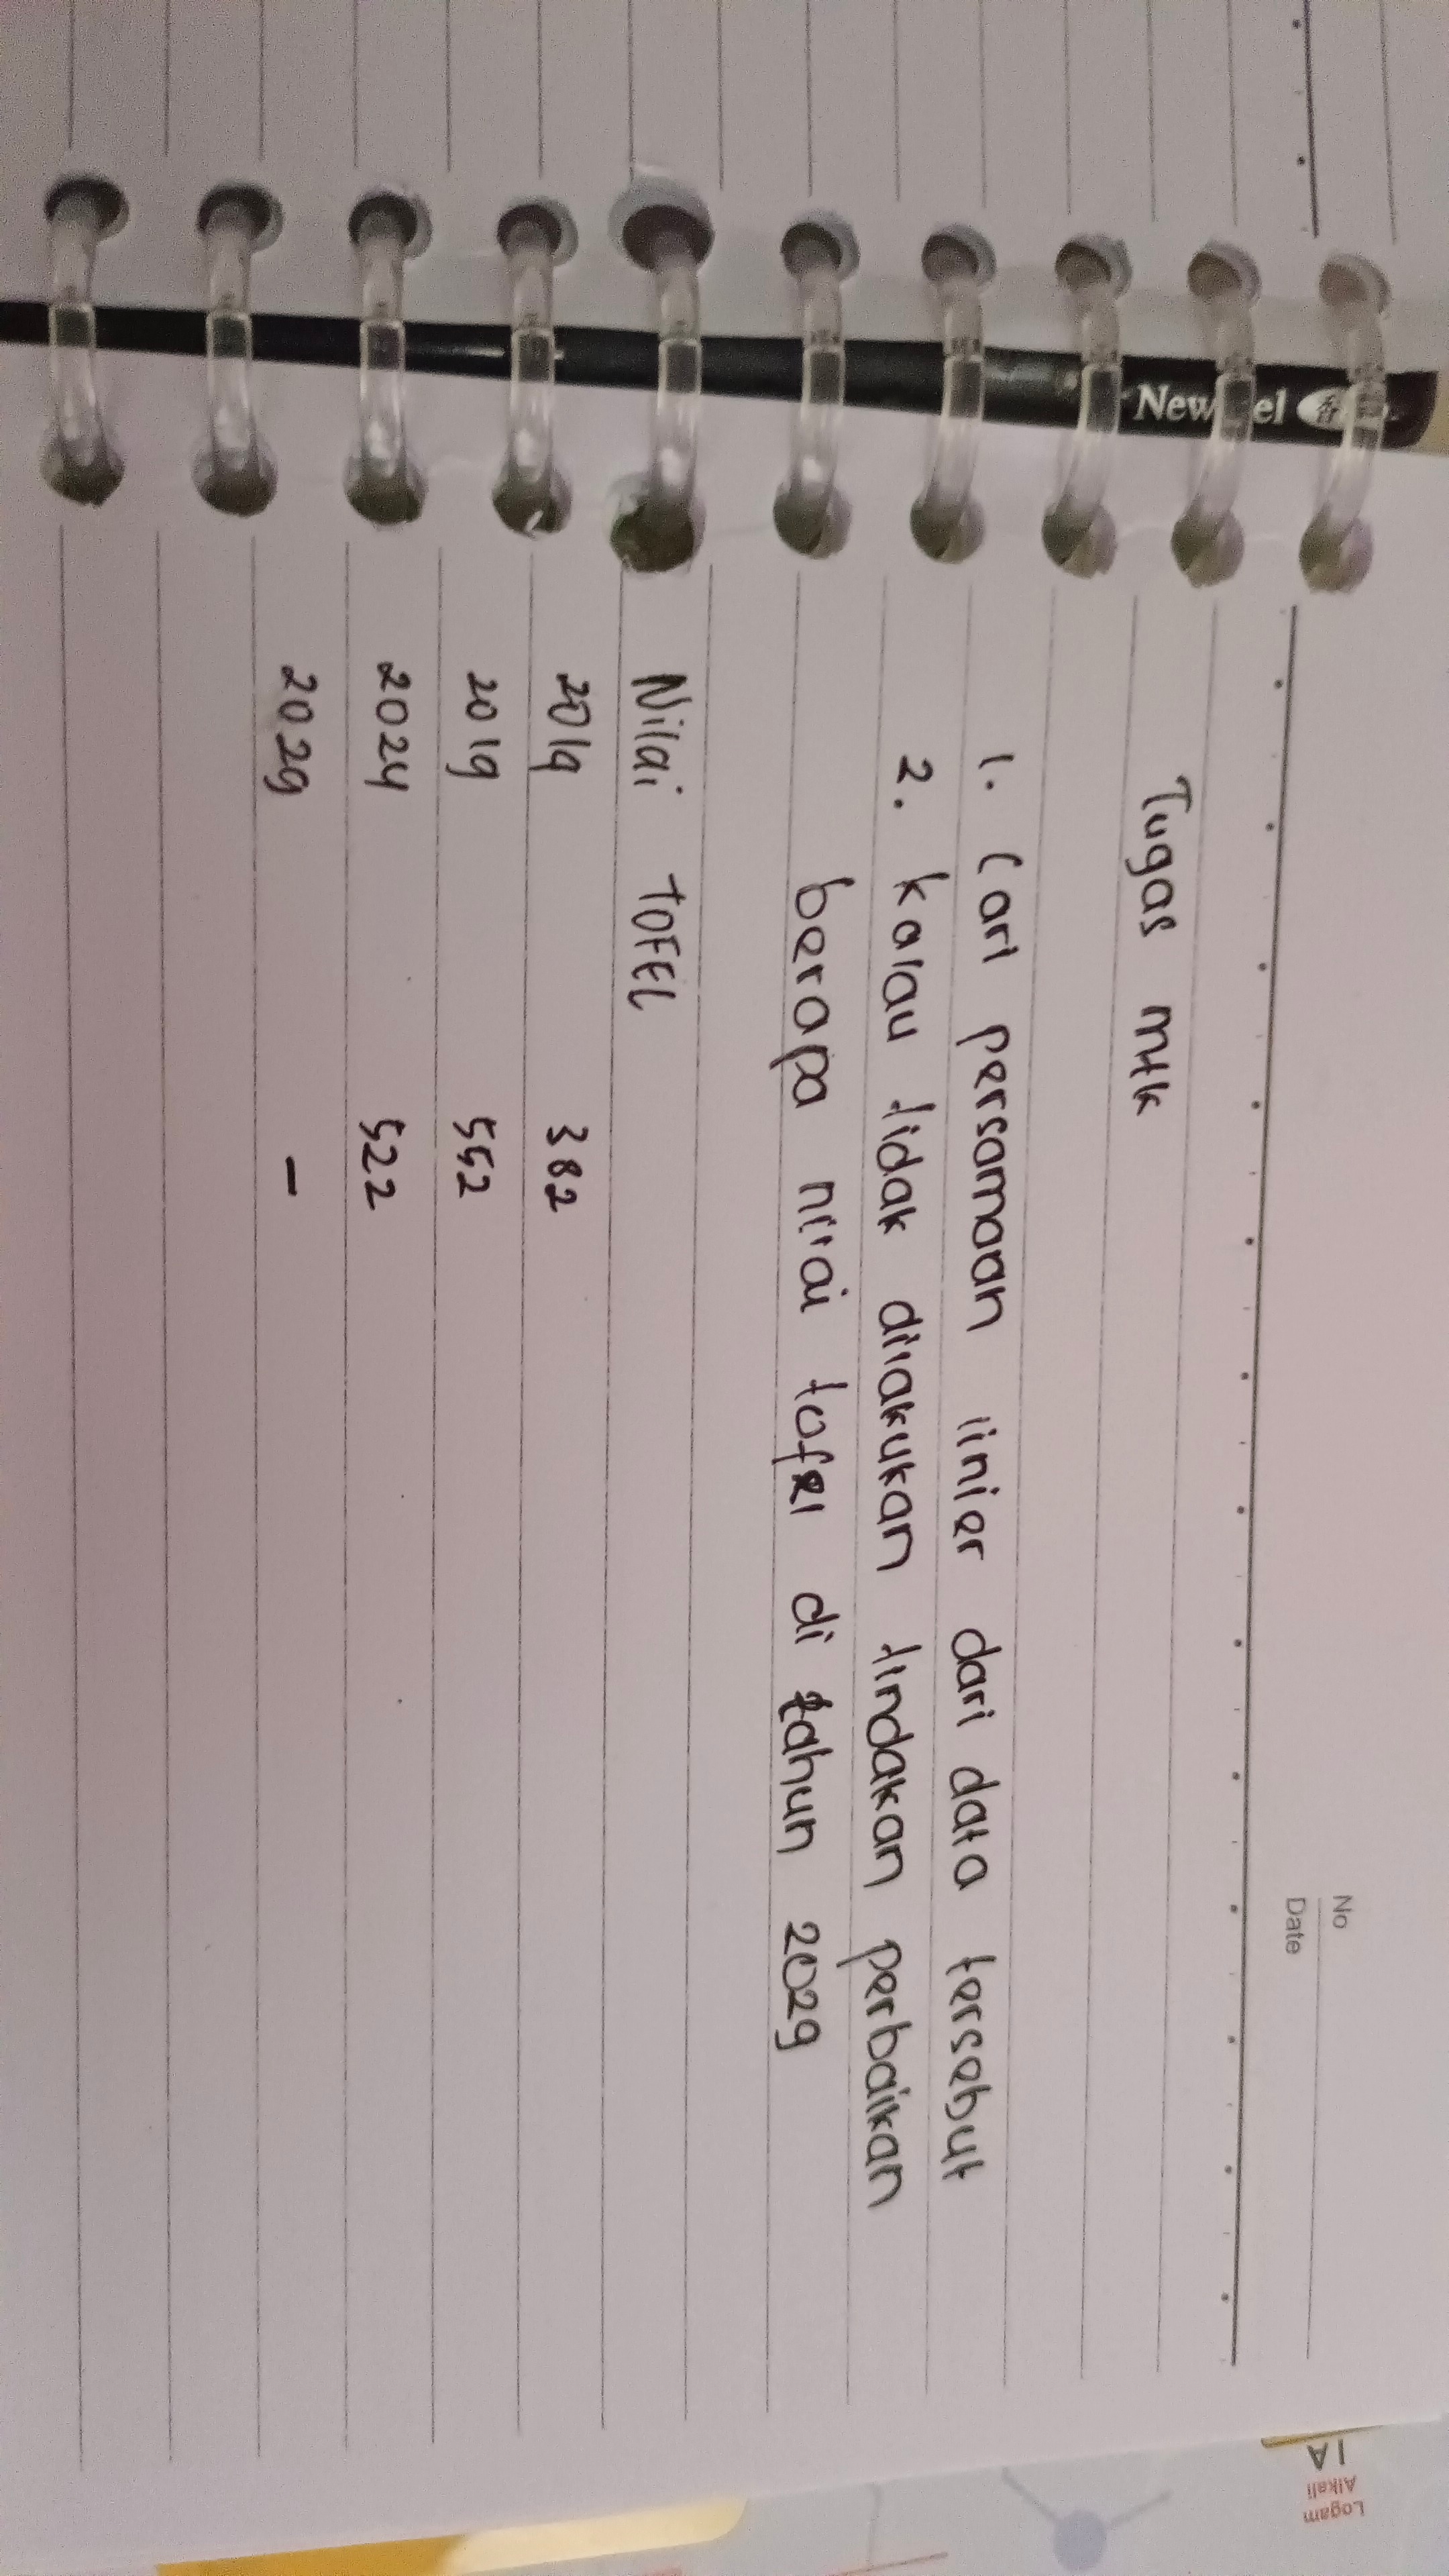 No
Date
Tugas MtK
1. Cari persamaan linier dari data tersebut
2. kalau tidak dilakukan tindakan perbaikan
berapa nilai tofel di tahun 2029
Nilai TOFEL
2014 382
2019 552
2024 522
2029 -
IA
Logam
Alkali